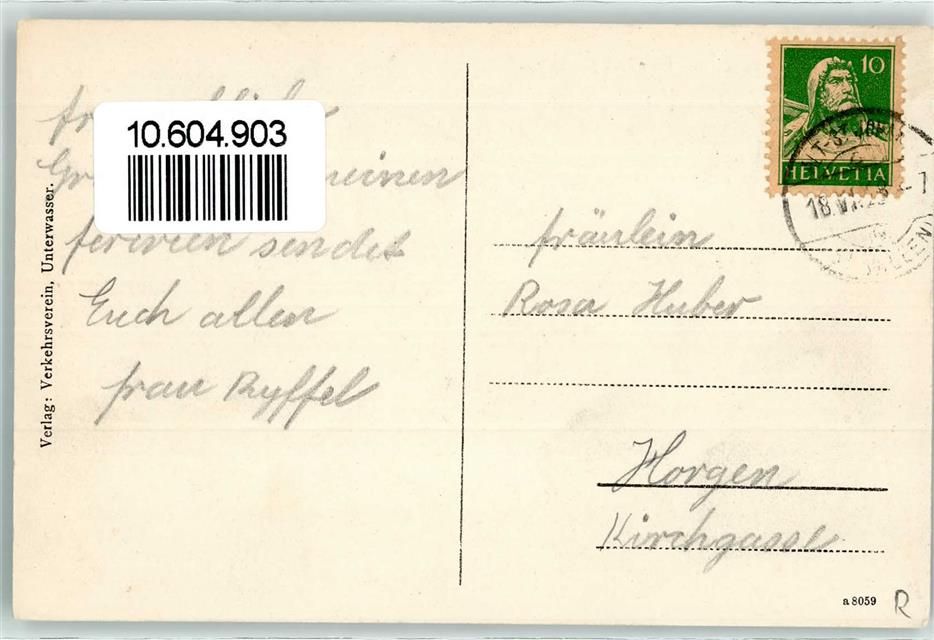 10.604.903
meinen
ferien sendet
Euch allen
frau Ryffel
Verlag: Verkehrsverein, Unterwasser.
10
HELVETIA
18.VI.
fräulein
Rosa Huber
Horgen
Kirchgasse
a 8059
R